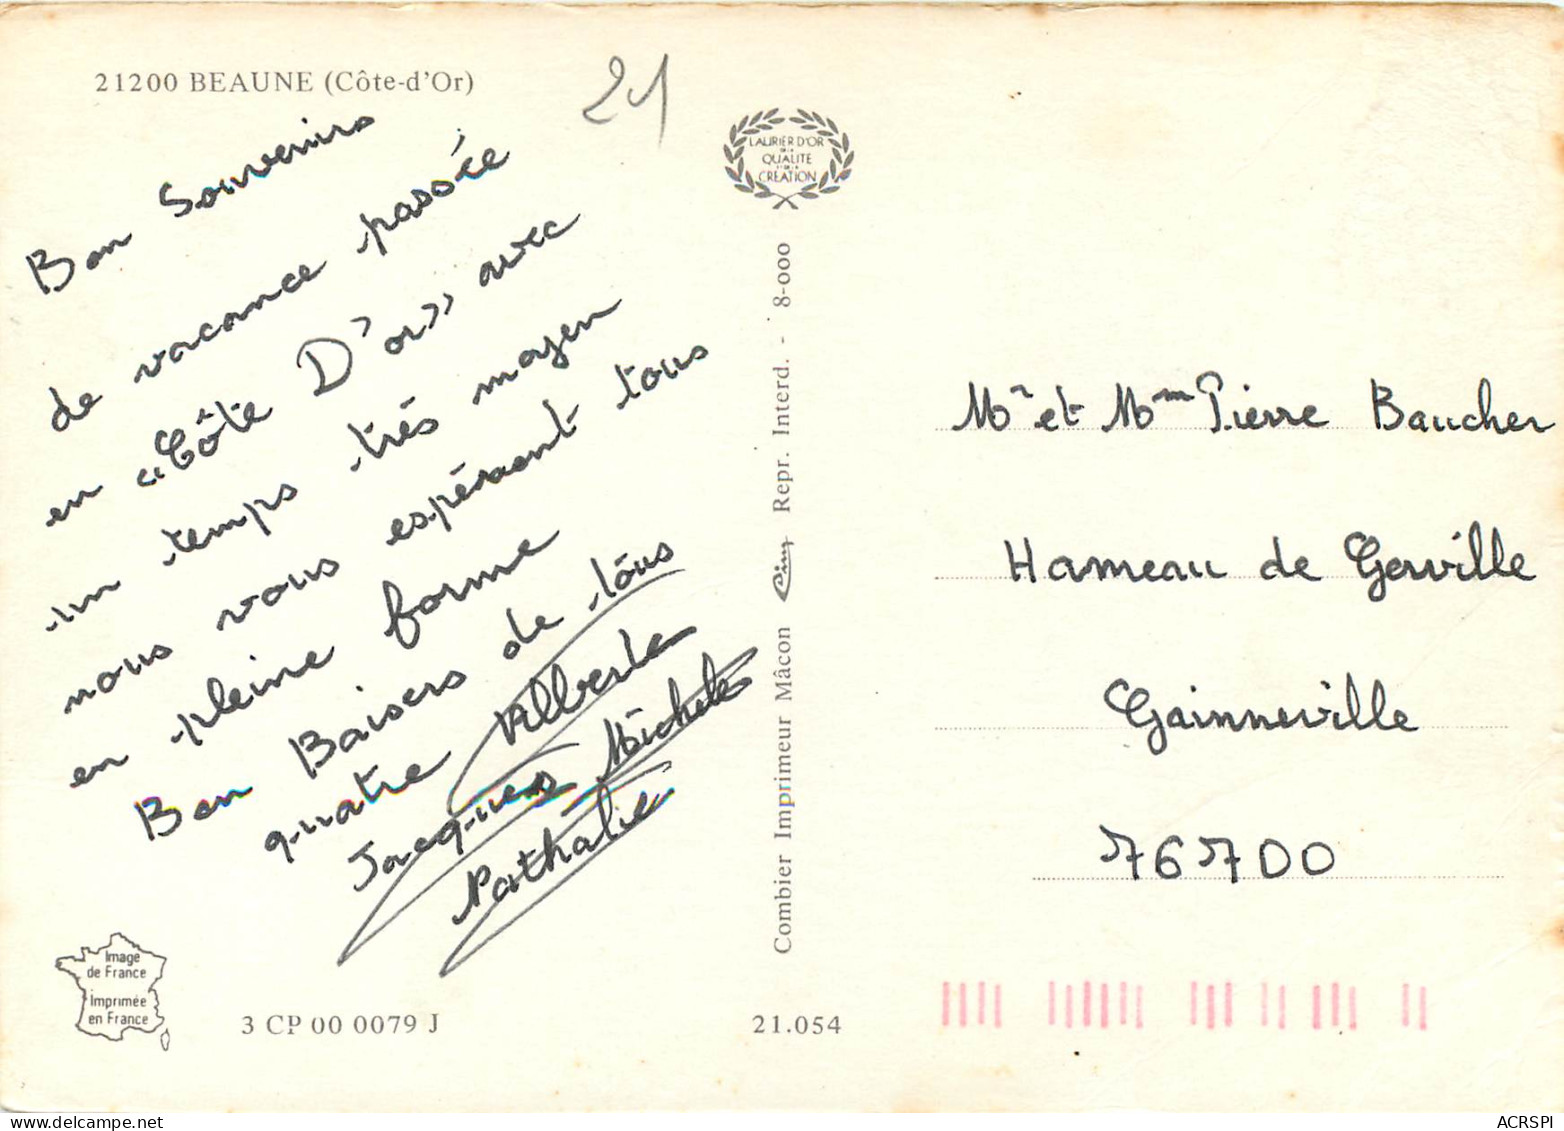 21200 BEAUNE (Côte-d'Or)
21
Bon Souvenirs
de vacance passée
en "Côte D'or" avec
un temps très moyen
nous vous espérant tous
en pleine forme
Bon Baisers de tous
quatre Alberte
Jacques Michele
Nathalie
Image
de France
Imprimée
en France
3 CP 00 0079 J
21.054
LAURIER D'OR
DE LA
QUALITÉ
ET DE LA
CRÉATION
Combier Imprimeur Mâcon Cim Repr. Interd. - 8-000
Mr et Mme Pierre Baucher
Hameau de Gerville
Gainneville
76700
ACRSPI